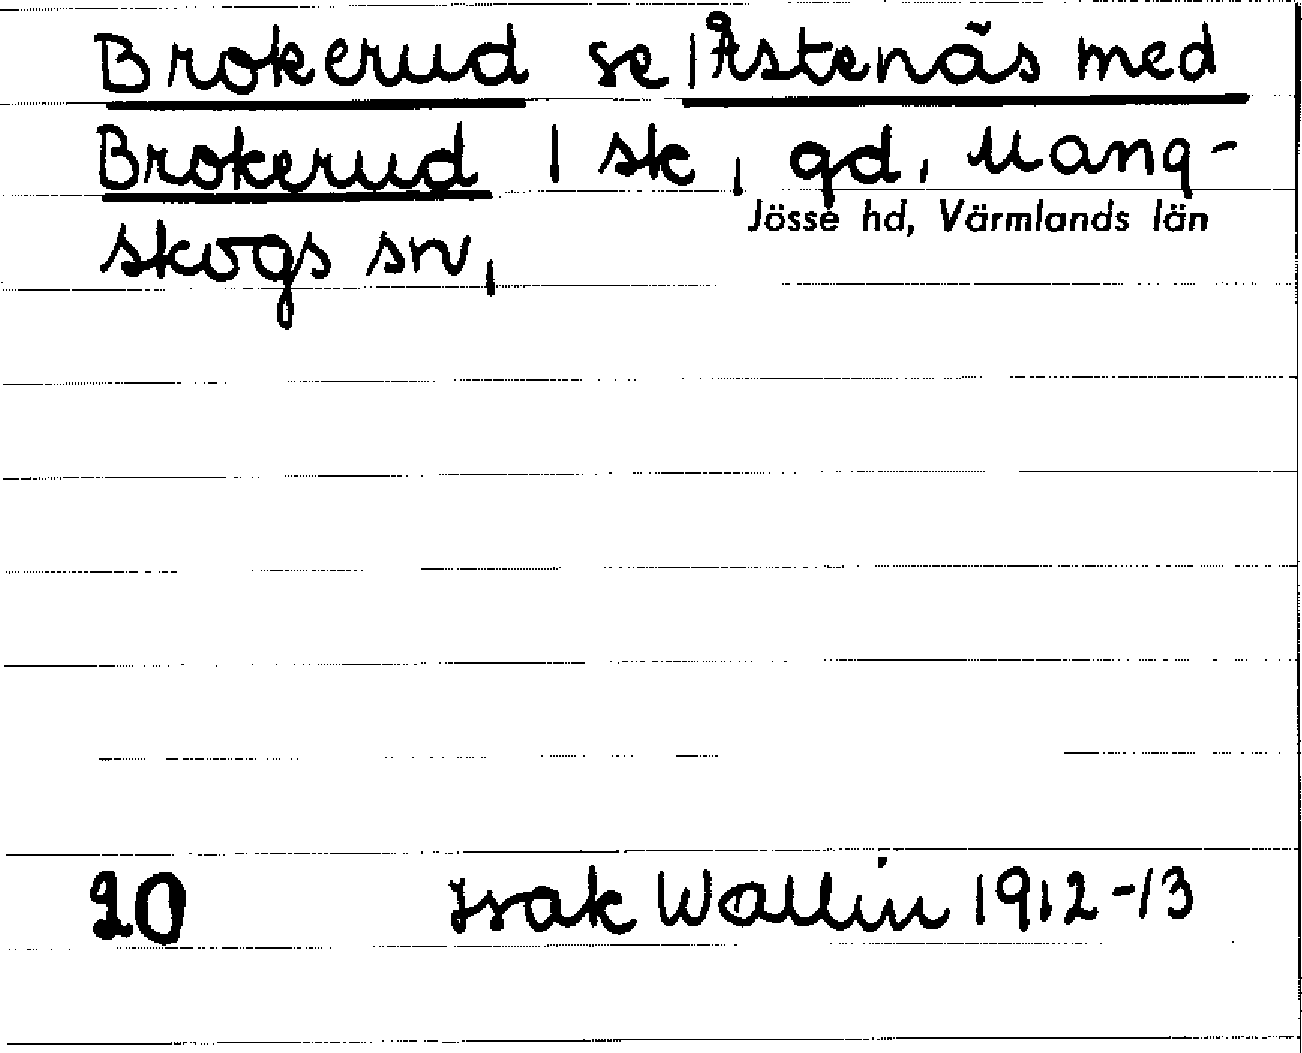 Brokerud se | Åstenäs med
Brokerud 1 sk, gd, Mang-
skogs sn,
Jösse hd, Värmlands län
20 Isak Wallin 1912-13